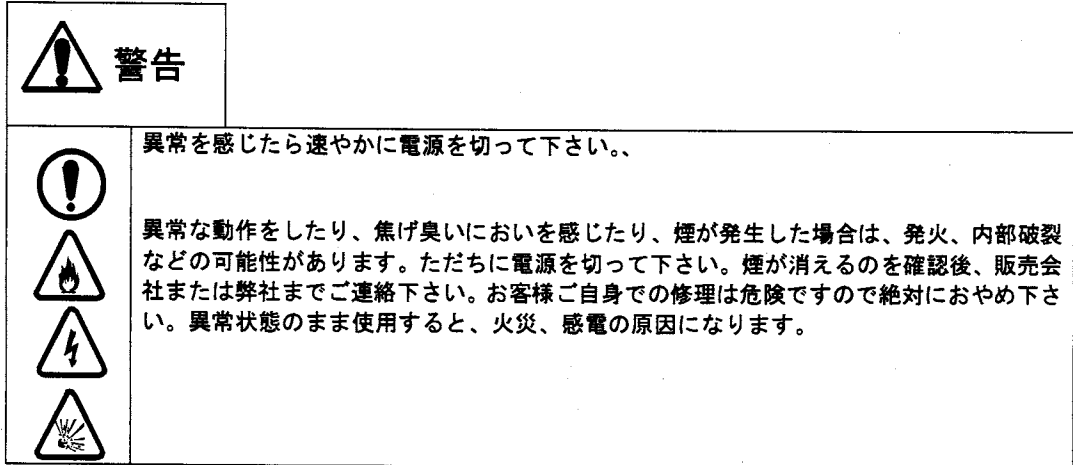 警告
異常を感じたら速やかに電源を切って下さい。、
異常な動作をしたり、焦げ臭いにおいを感じたり、煙が発生した場合は、発火、内部破裂
などの可能性があります。ただちに電源を切って下さい。煙が消えるのを確認後、販売会
社または弊社までご連絡下さい。お客様ご自身での修理は危険ですので絶対におやめ下さ
い。異常状態のまま使用すると、火災、感電の原因になります。